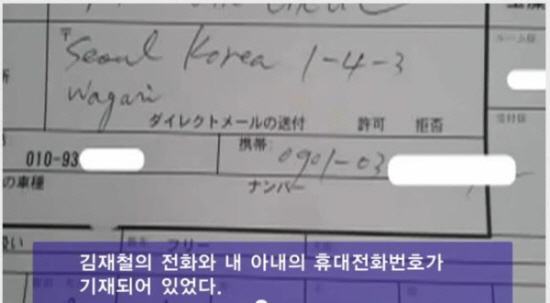 〒
Seoul Korea 1-4-3
Wagari
ダイレクトメールの送付 許可 拒否
ルーム
010-93
携帯
0901-03
の車種
ナンバー
フリー
김재철의 전화와 내 아내의 휴대전화번호가
기재되어 있었다.